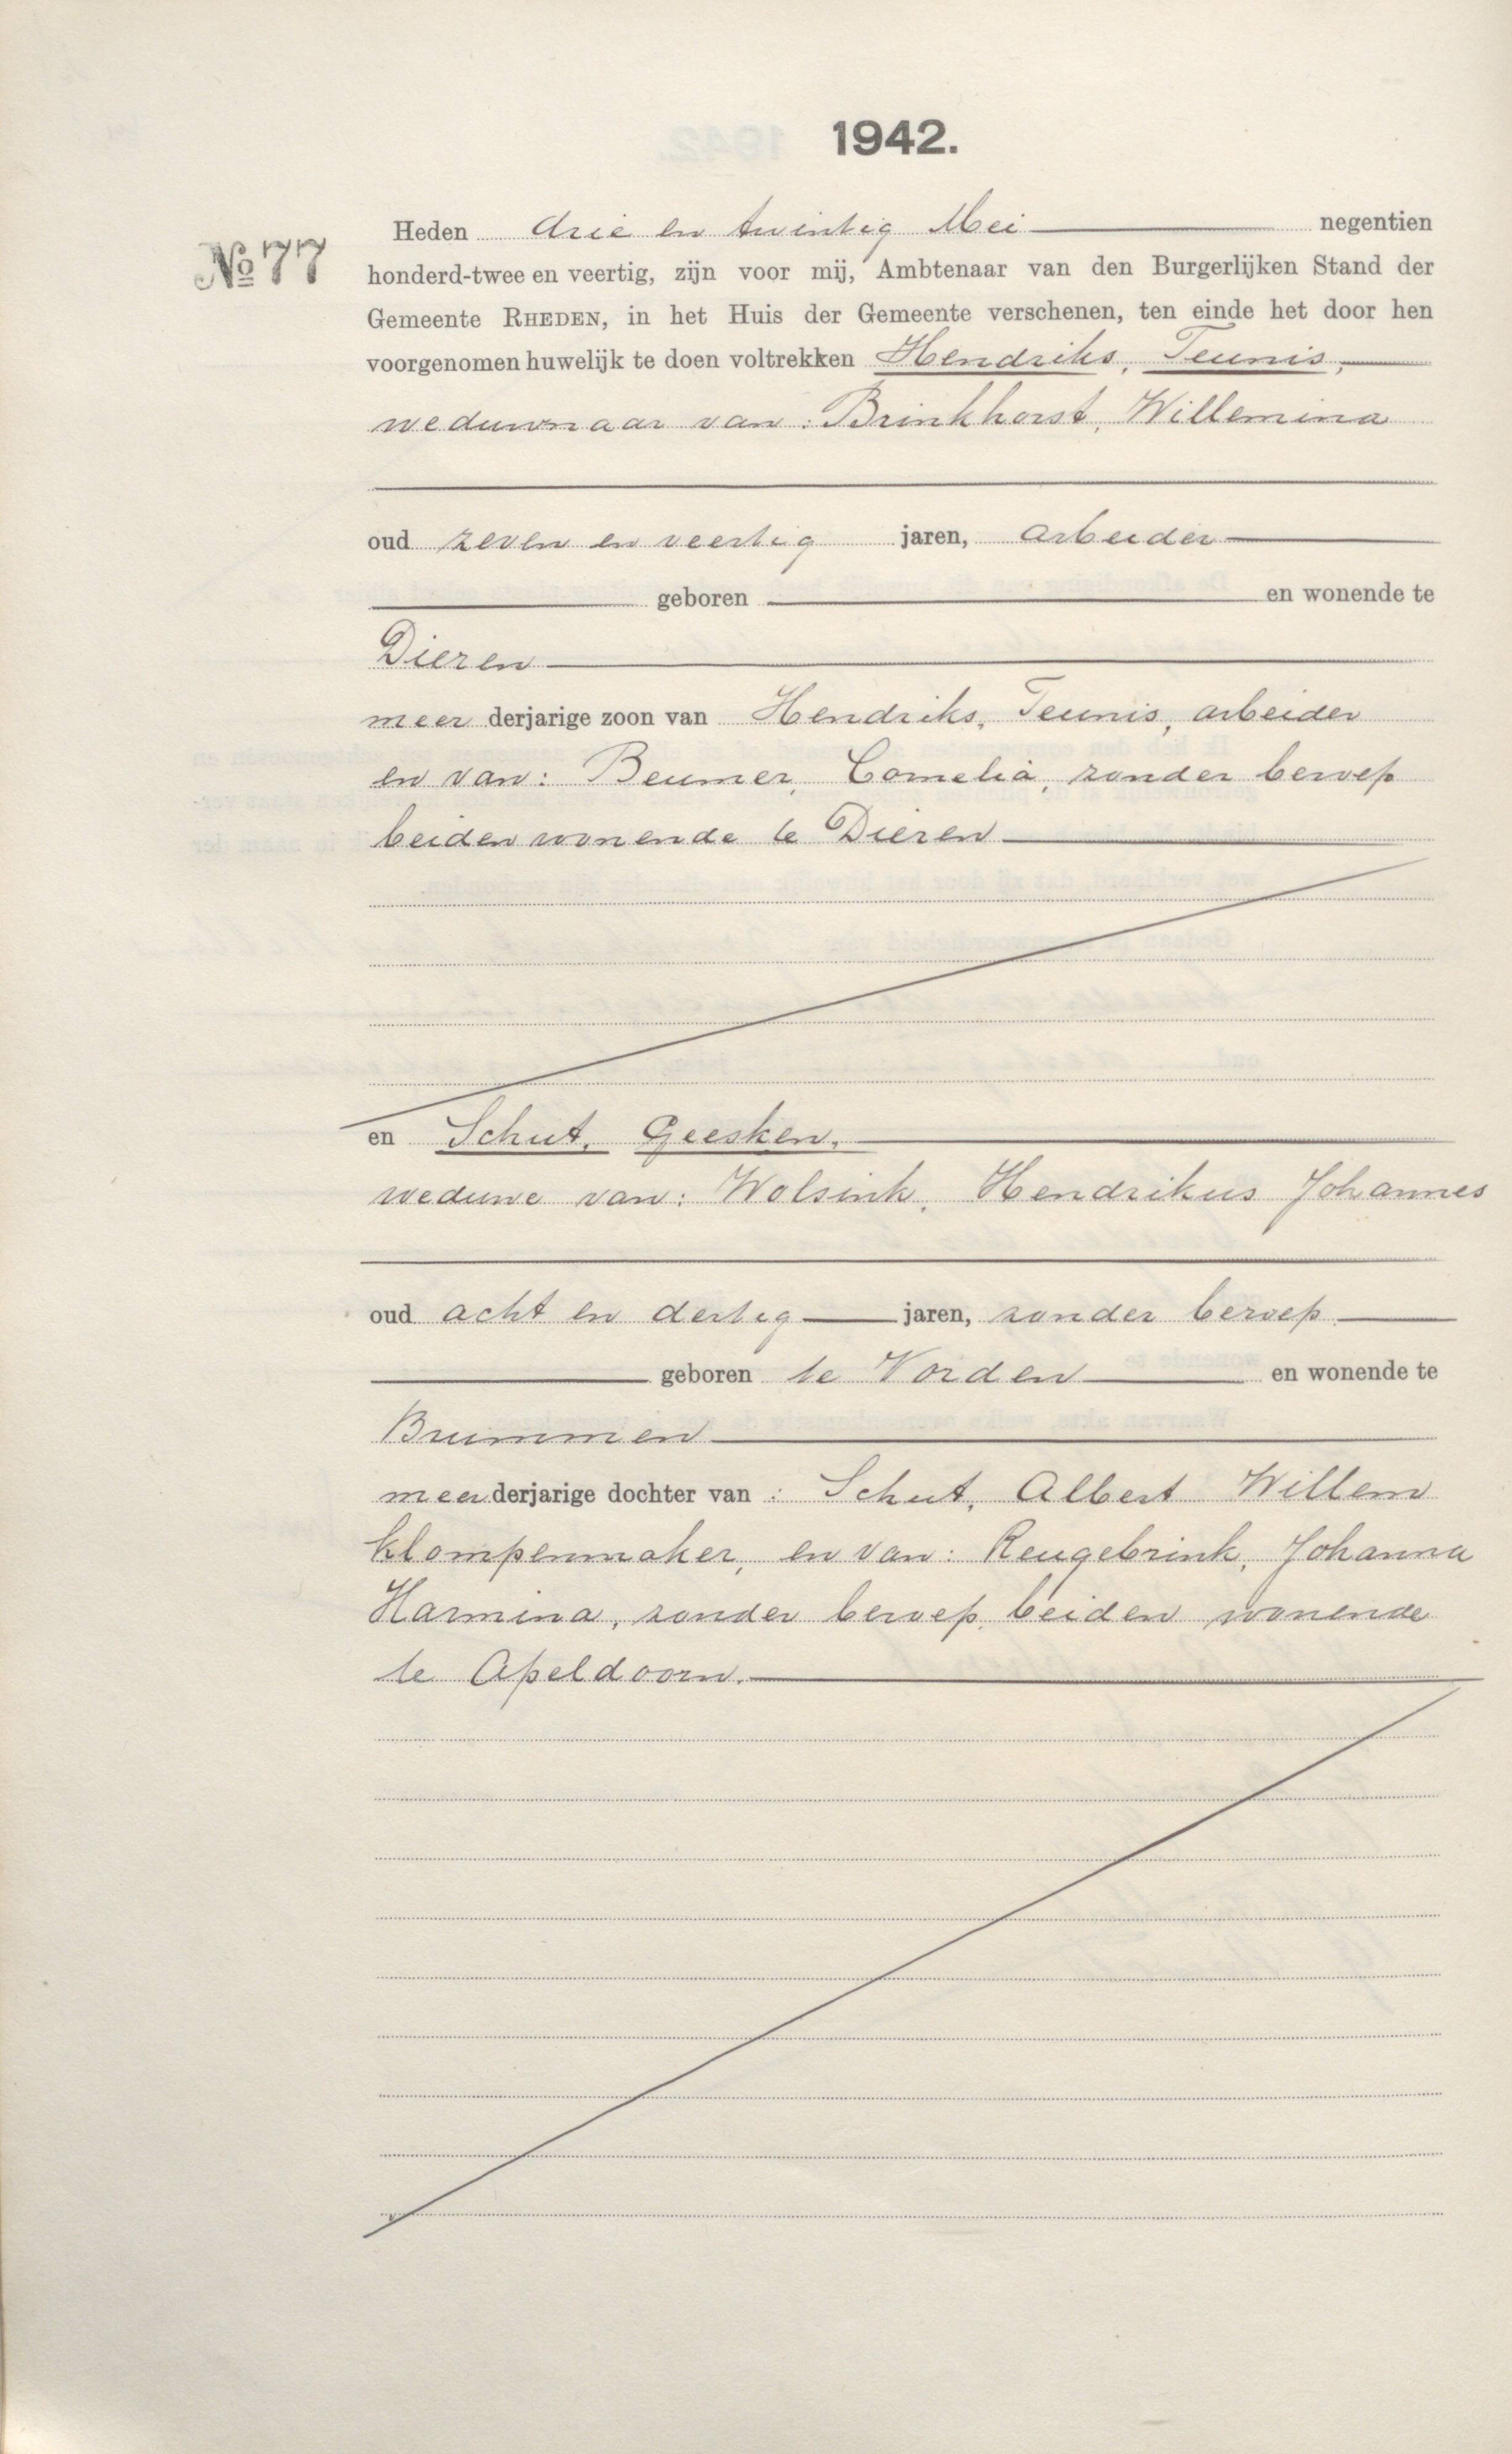 1942.
Nº 77
Heden drie en twintig Mei negentien
honderd-twee en veertig, zijn voor mij, Ambtenaar van den Burgerlijken Stand der
Gemeente RHEDEN, in het Huis der Gemeente verschenen, ten einde het door hen
voorgenomen huwelijk te doen voltrekken Hendriks, Teunis,
weduwnaar van: Brinkhorst, Willemina
oud zeven en veertig jaren, arbeider
geboren en wonende te
Dieren
meer derjarige zoon van Hendriks, Teunis, arbeider
en van: Beumer, Cornelia, zonder beroep
beiden wonende te Dieren
en Schut, Geesken,
weduwe van: Wolsink, Hendrikus Johannes
oud acht en dertig jaren, zonder beroep
geboren te Vorden en wonende te
Brummen
meer derjarige dochter van: Schut, Albert Willem
klompenmaker, en van: Reugebrink, Johanna
Harmina, zonder beroep, beiden wonende
te Apeldoorn.